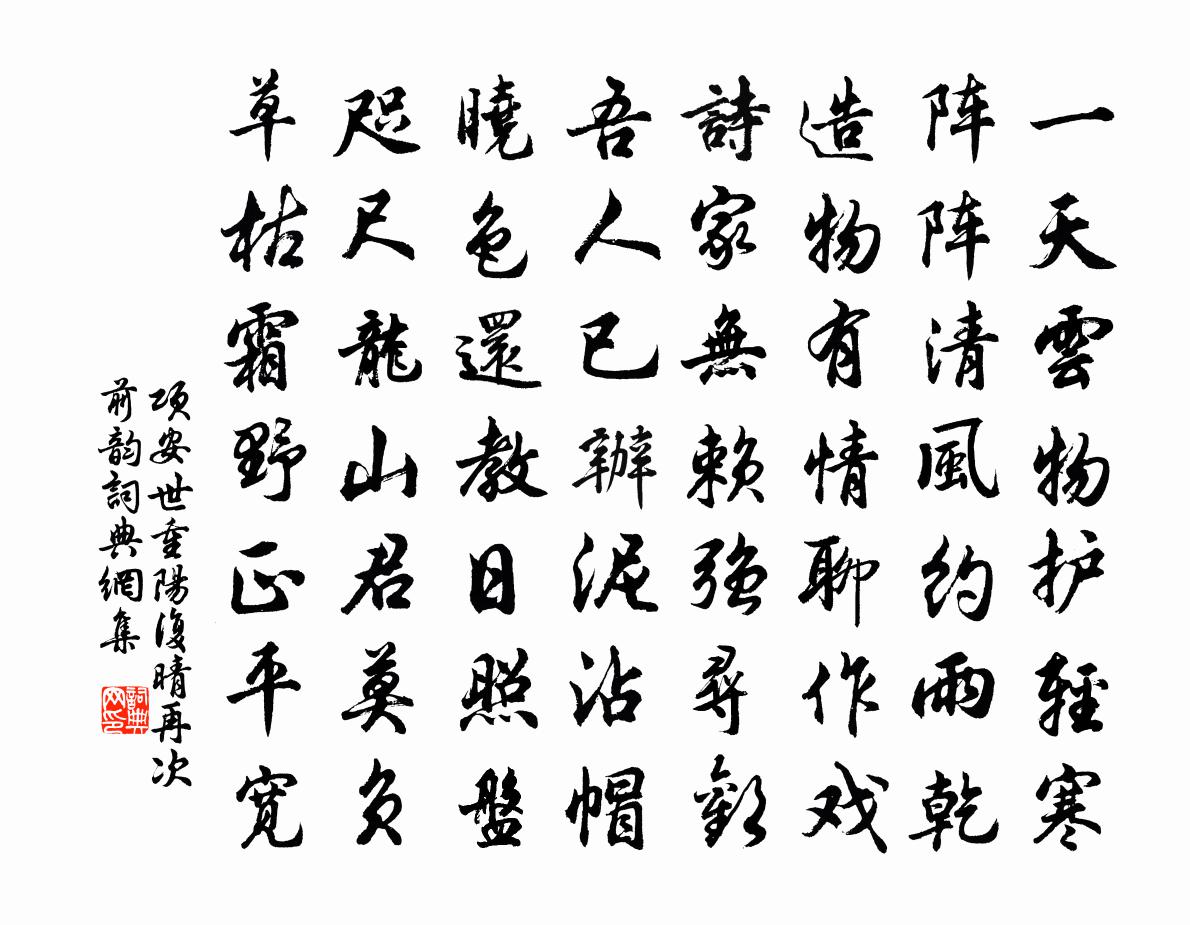 一天雲物护輕寒
阵阵清風約雨乾
造物有情聊作戏
詩家無賴强尋歡
吾人已辦泥沾帽
曉色還教日照盤
咫尺龍山君莫负
草枯霜野正平寬
项安世重陽復晴再次
前韵詞典網集
詞典网印